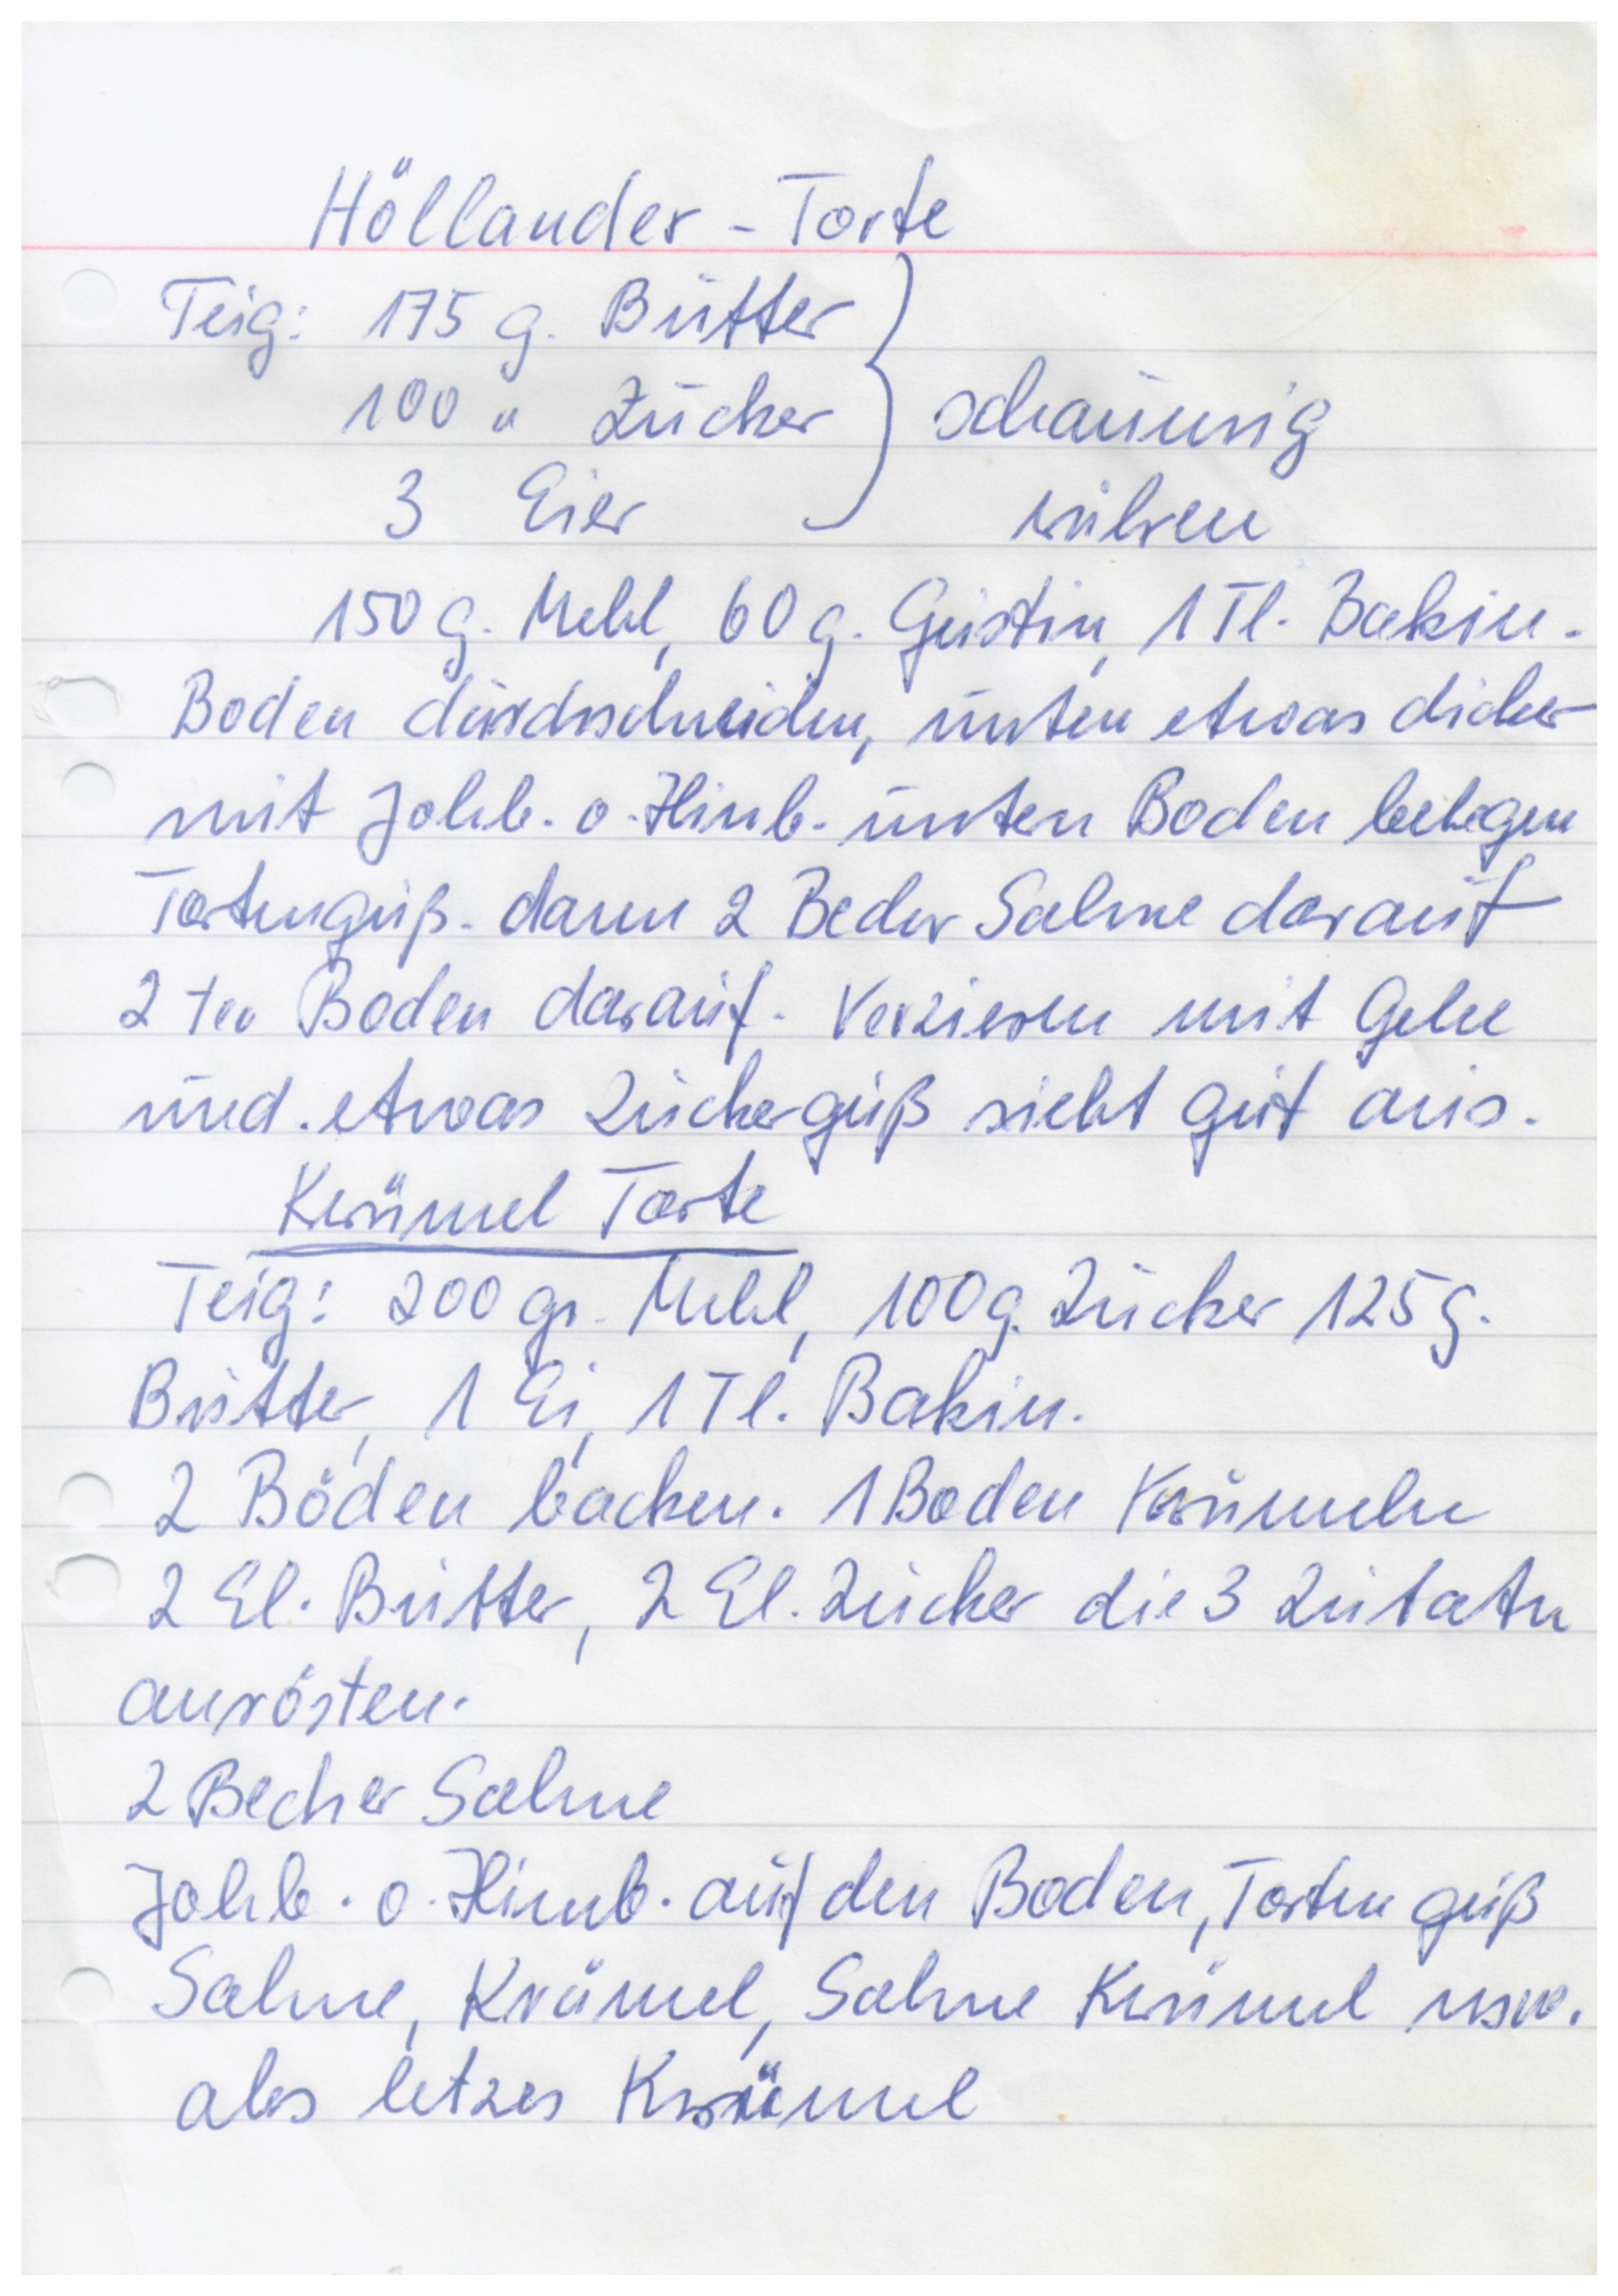 Höllander - Torte
Teig: 175 g. Butter
100 " Zucker } schaumig
3 Eier rühren
150 g. Mehl, 60 g. Gustin, 1 Tl. Bakin.
Boden durchschneiden, unten etwas dicker
mit Johb. o. Himb. unten Boden belegen
Tortenguß. dann 2 Becher Sahne darauf
2 ten Boden darauf. Verzieren mit Gelee
und. etwas Zuckerguß sieht gut aus.
Krümel Torte
Teig: 200 gr. Mehl, 100 g. Zucker 125 g.
Butter, 1 Ei, 1 Tl. Bakin.
2 Böden backen. 1 Boden Krümeln
2 El. Butter, 2 El. Zucker die 3 Zutaten
anrösten.
2 Becher Sahne
Johb. o. Himb. auf den Boden, Torten guß
Sahne, Krümel, Sahne Krümel usw.
als letzes Krümel